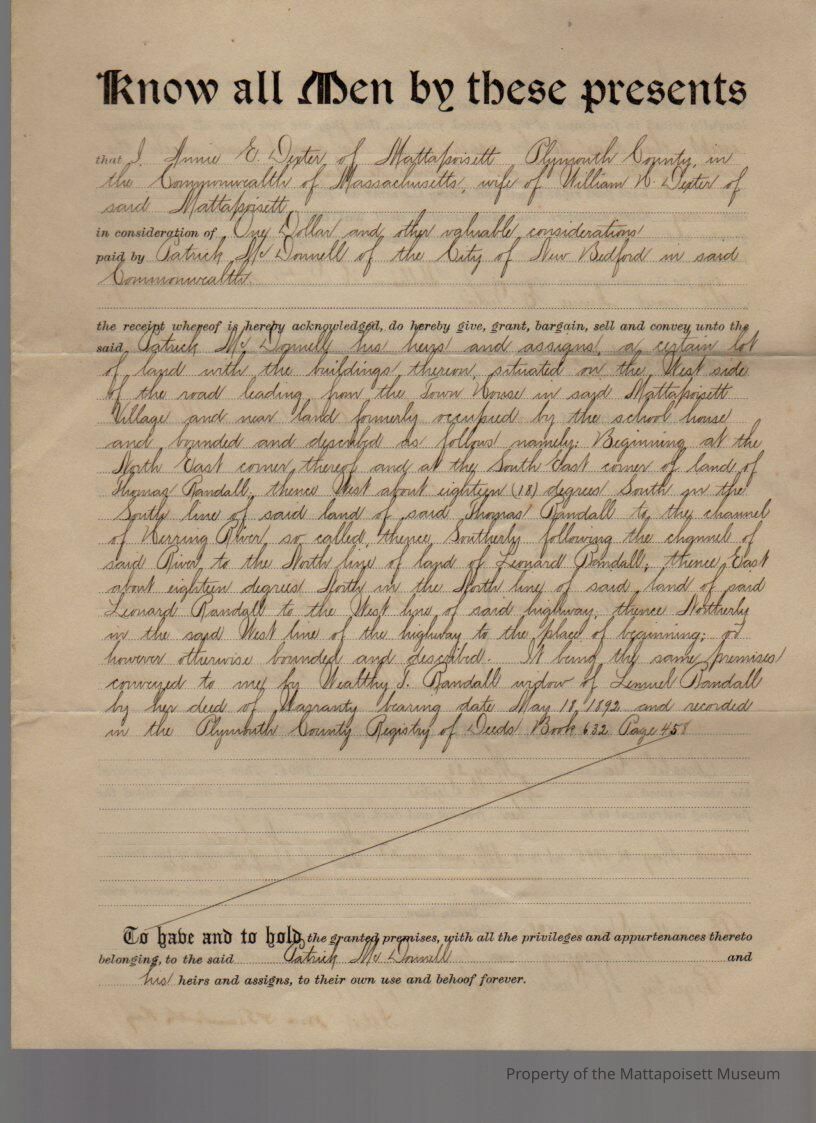 Know all Men by these presents
that I, Annie E. Dexter, of Mattapoisett Plymouth County, in
the Commonwealth of Massachusetts, wife of William H. Dexter of
said Mattapoisett
in consideration of One Dollar and other valuable considerations
paid by Patrick McDonnell of the City of New Bedford in said
Commonwealth.
the receipt whereof is hereby acknowledged, do hereby give, grant, bargain, sell and convey unto the
said Patrick McDonnell his heirs and assigns, a certain lot
of land with the buildings thereon, situated on the West side
of the road leading from the Town House in said Mattapoisett
Village and near land formerly occupied by the school house
and bounded and described as follows namely: Beginning at the
North East corner thereof and at the South East corner of land of
Thomas Randall, thence West about eighteen (18) degrees South in the
South line of said land of said Thomas Randall to the channel
of Herring River, so called, thence Southerly following the channel of
said River to the North line of land of Leonard Randall, thence East
about eighteen degrees North in the North line of said land of said
Leonard Randall to the West line of said highway, thence Northerly
in the said West line of the highway to the place of beginning; or
however otherwise bounded and described. It being the same premises
conveyed to me by Wealthy T. Randall widow of Lemuel Randall
by her deed of Warranty bearing date May 18, 1892 and recorded
in the Plymouth County Registry of Deeds Book 632 Page 458
To have and to hold the granted premises, with all the privileges and appurtenances thereto
belonging, to the said Patrick McDonnell and
his heirs and assigns, to their own use and behoof forever.
Property of the Mattapoisett Museum